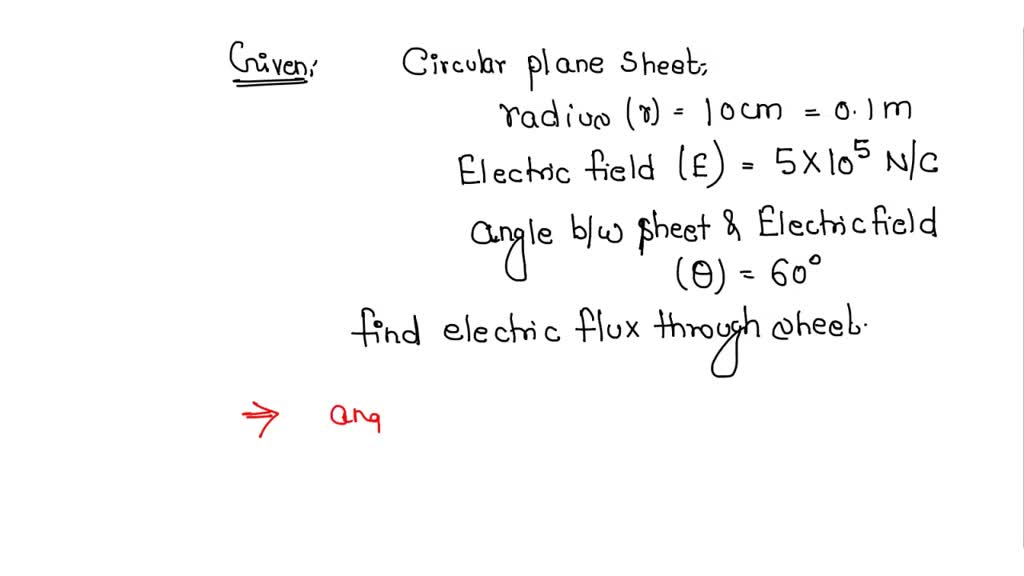 Given: Circular plane sheet,
radius (r) = 10cm = 0.1m
Electric field (E) = 5X10⁵ N/C
angle b/w sheet & Electric field
(θ) = 60°
find electric flux through sheet.
⇒ ang